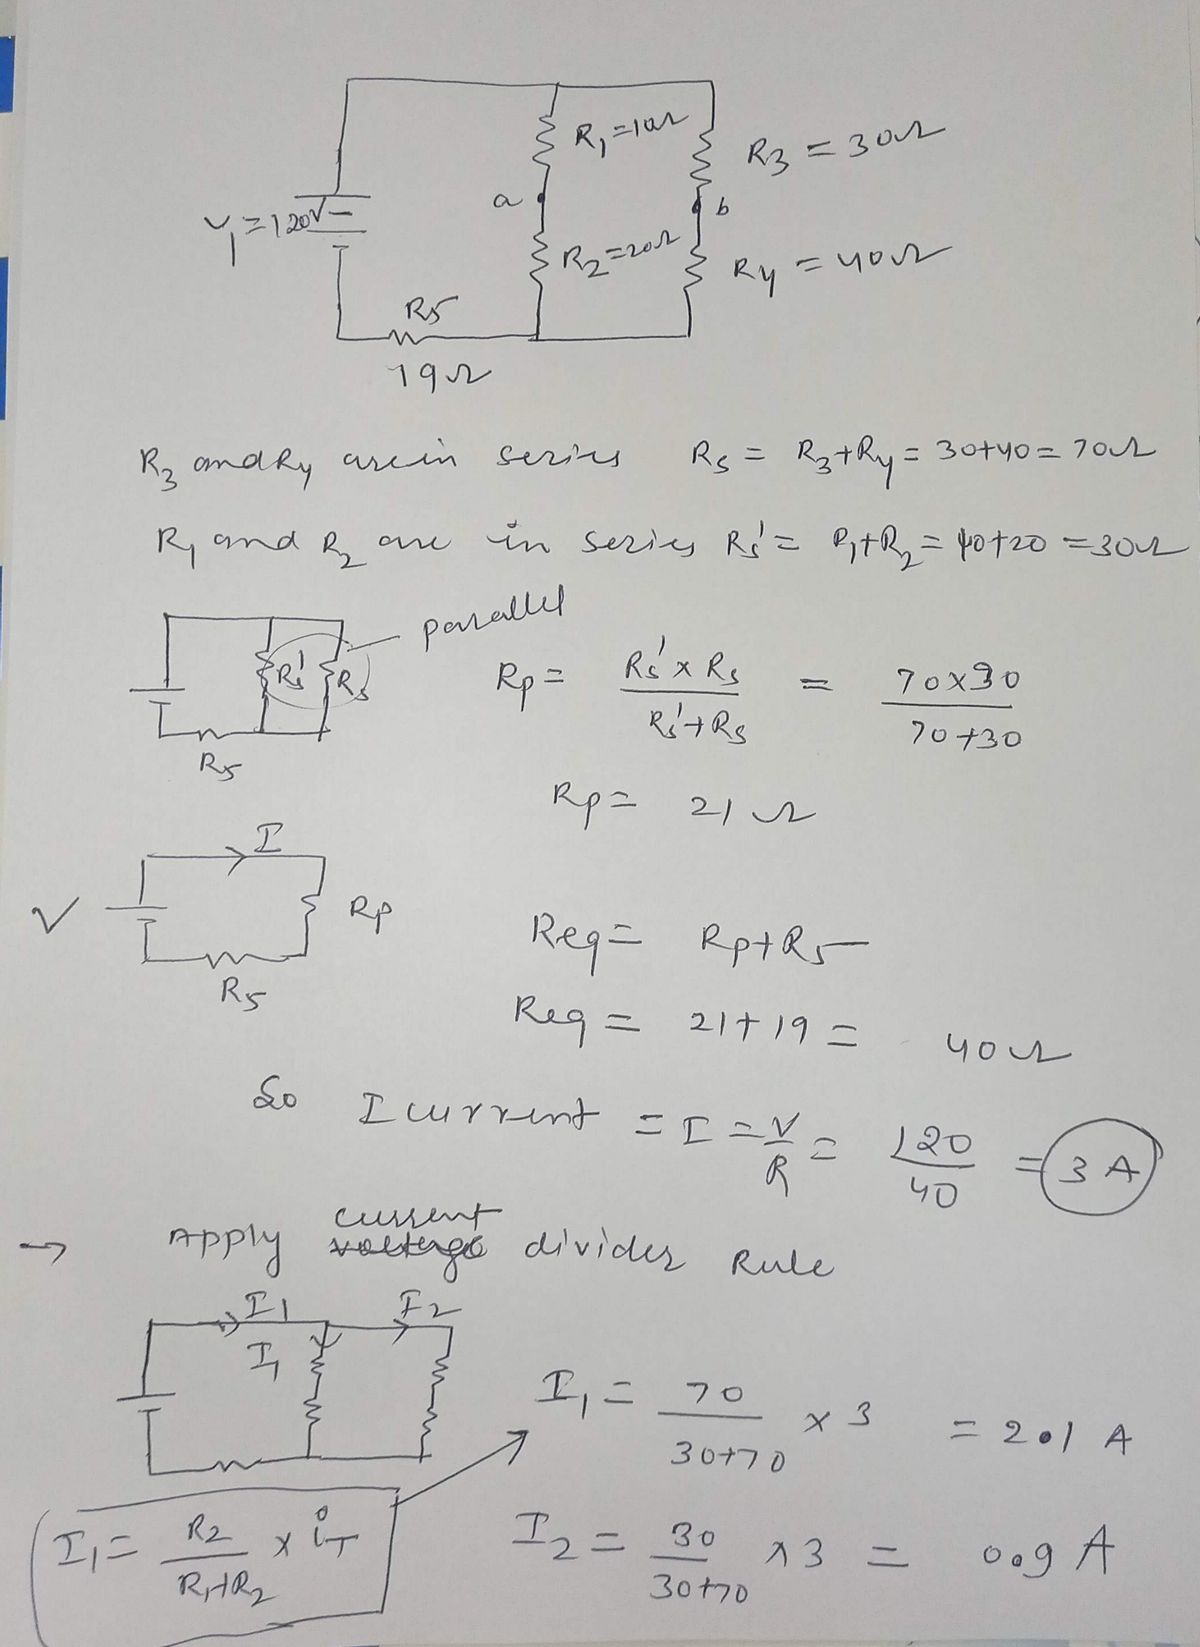 R1 = 10Ω
R3 = 30Ω
a
b
V1 = 120V
R2 = 20Ω
Ry = 40Ω
R5
19Ω
R3 and Ry are in series Rs = R3 + Ry = 30+40 = 70Ω
R1 and R2 are in series Rs' = R1+R2 = 10+20 = 30Ω
parallel
Rs' Rs
R5
Rp = Rs' x Rs / Rs' + Rs = 70x30 / 70+30
Rp = 21Ω
I
V
Rp
R5
Req = Rp + R5
Req = 21+19 = 40Ω
So I current = I = V/R = 120/40 = 3 A
→ Apply current divider Rule
I1 I2
I1
I1 = 70 / 30+70 x 3 = 2.1 A
I1 = R2 / R1+R2 x iT
I2 = 30 / 30+70 x 3 = 0.9 A